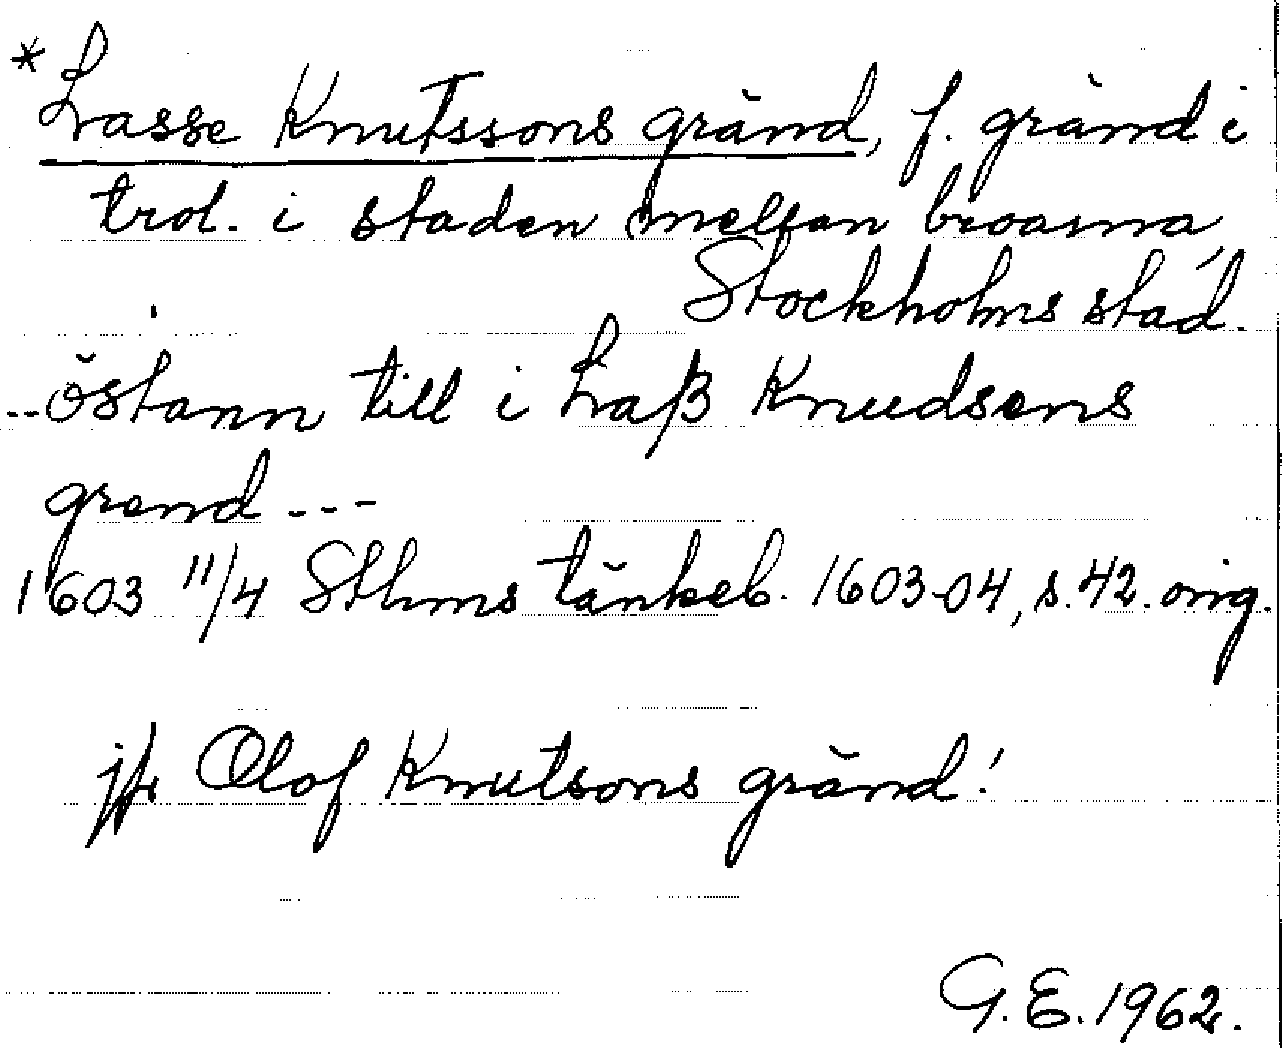 * Lasse Knutssons gränd, f. gränd i
trol. i staden mellan broarna,
Stockholms stad.
--östann till i Laß Knudsens
grend ---
1603 11/4 Sthms tänkeb. 1603-04, s. 42. orig.
jfr Olof Knutsons gränd!
G. E. 1962.